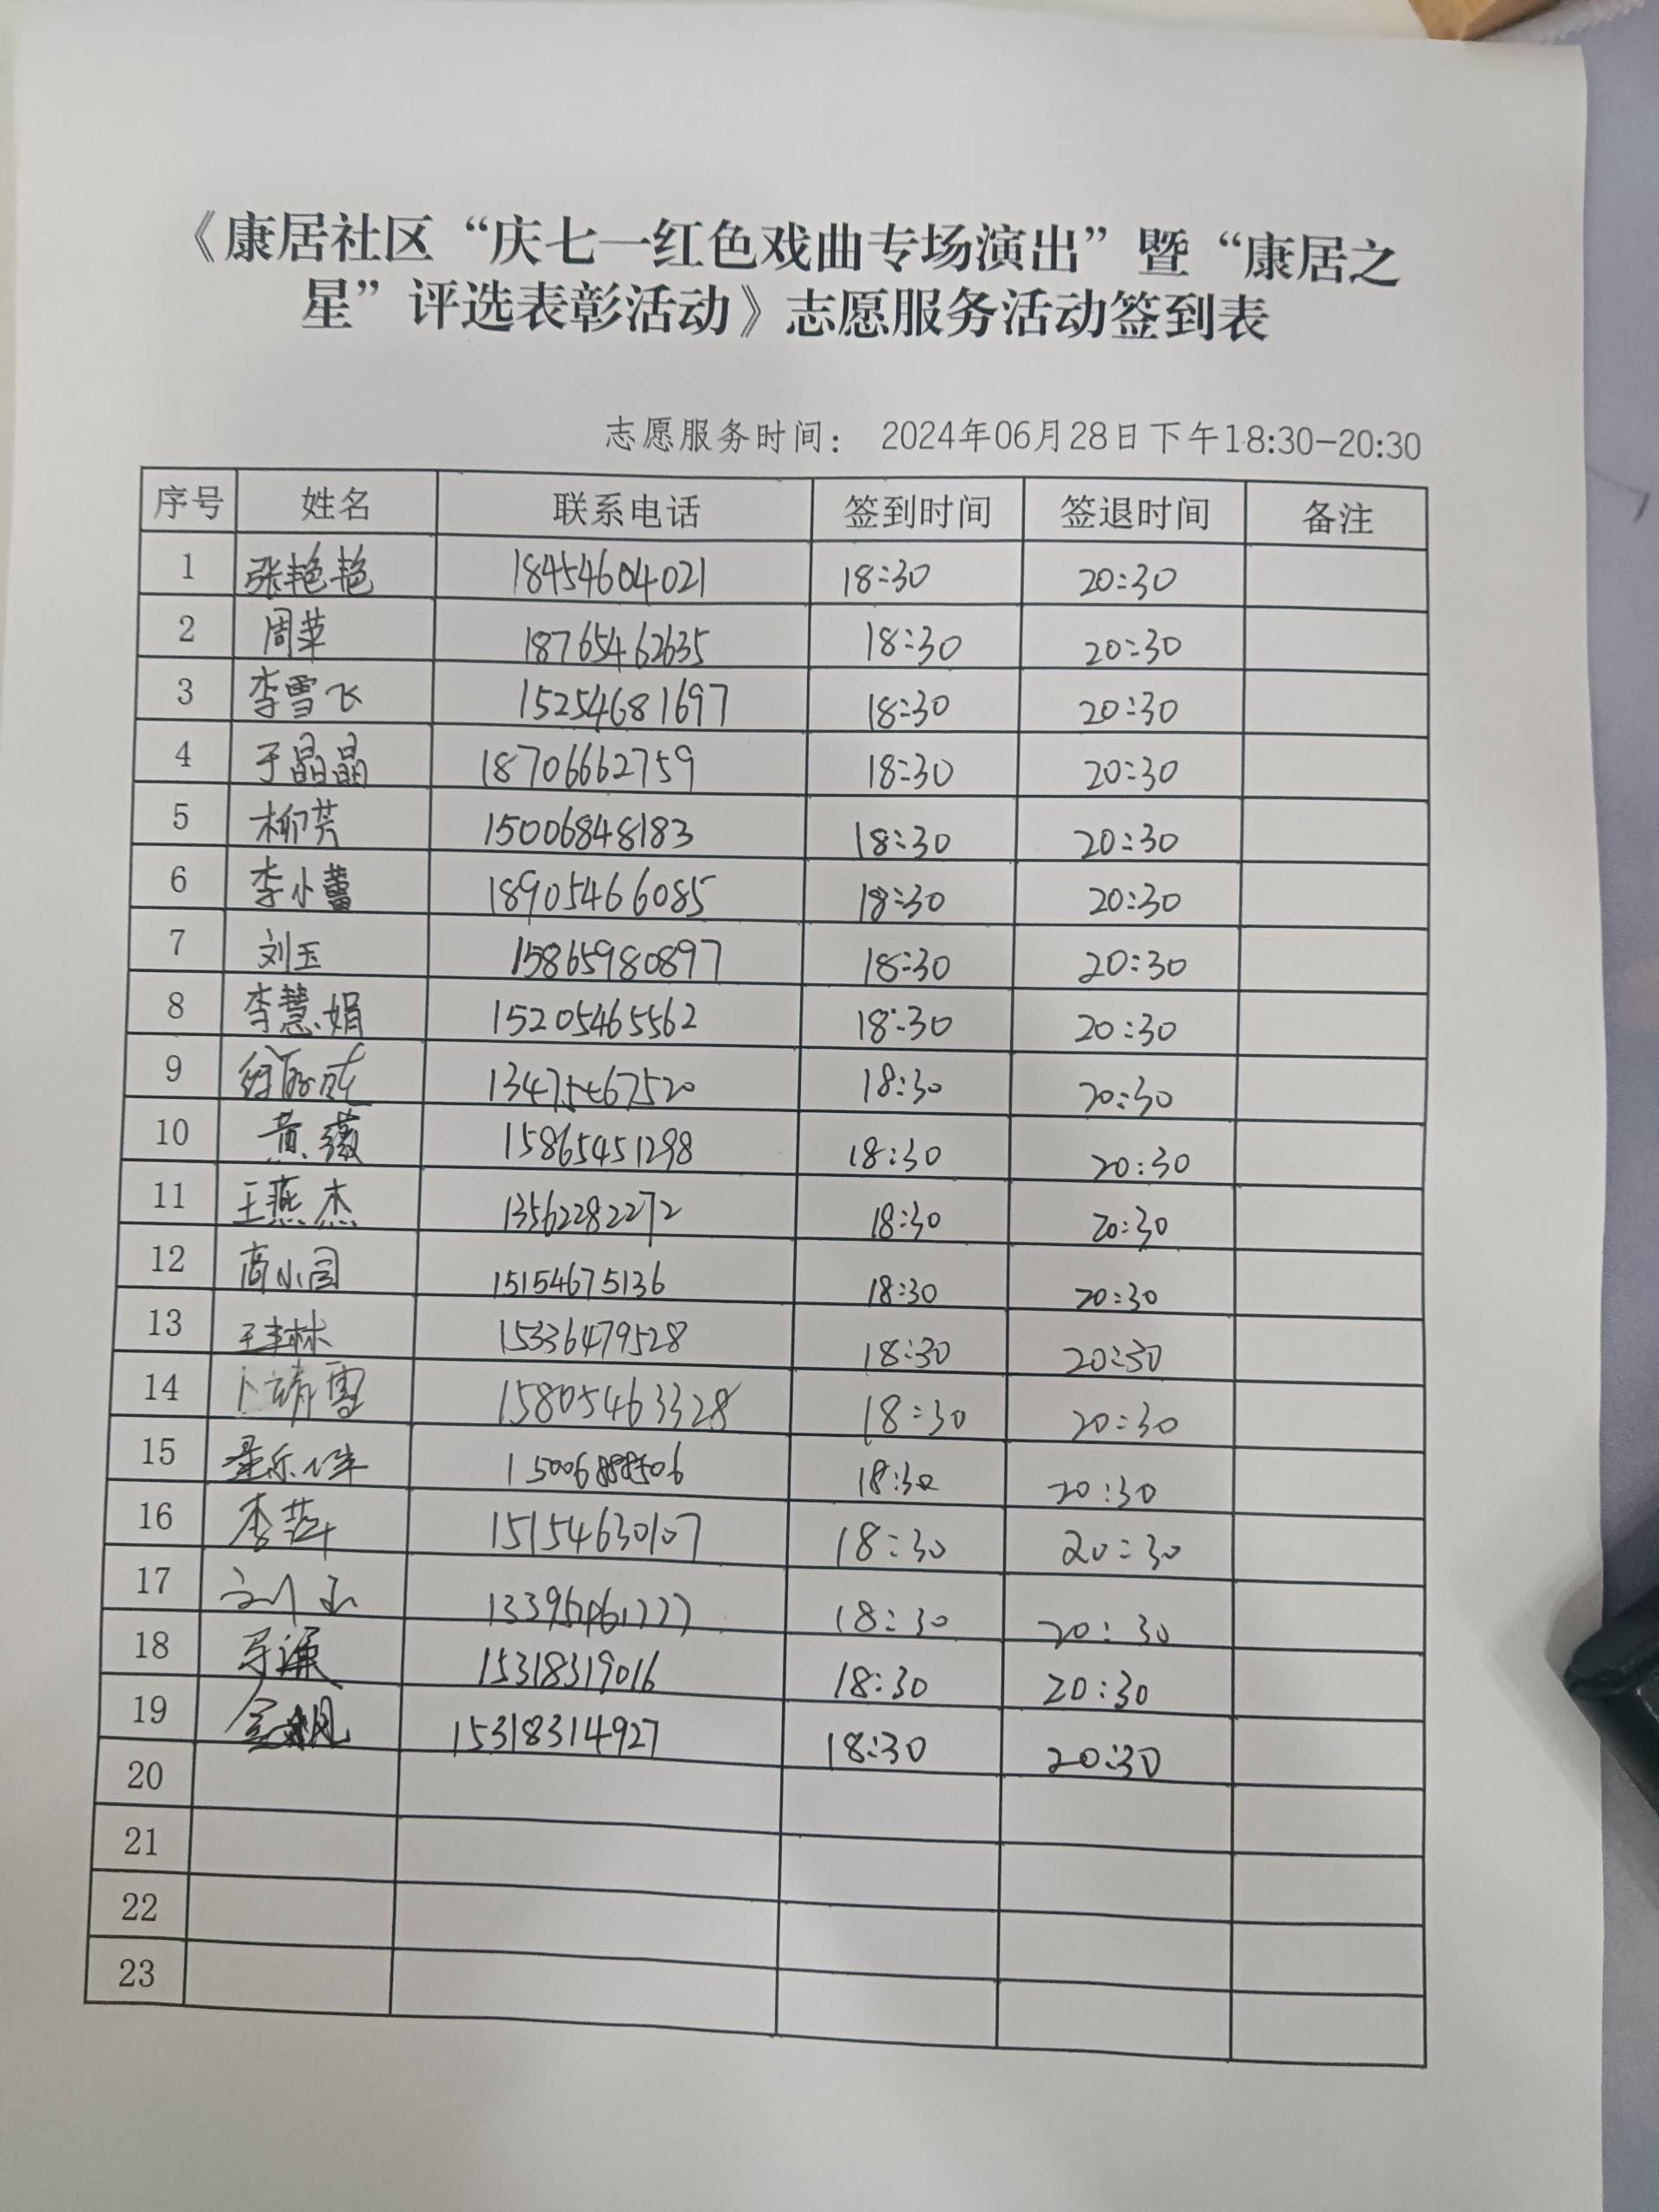 《康居社区“庆七一红色戏曲专场演出”暨“康居之
星”评选表彰活动》志愿服务活动签到表
志愿服务时间： 2024年06月28日下午18:30-20:30
序号 姓名 联系电话 签到时间 签退时间 备注
1 张艳艳 18454604021 18:30 20:30
2 周苹 18765462635 18:30 20:30
3 李雪飞 15254681697 18:30 20:30
4 于晶晶 18706662759 18:30 20:30
5 柳芳 15006848183 18:30 20:30
6 李小蕾 18905466085 18:30 20:30
7 刘玉 15865980897 18:30 20:30
8 李慧娟 15205465562 18:30 20:30
9 13475467520 18:30 20:30
10 黄薇 15865451298 18:30 20:30
11 王燕杰 13562282272 18:30 20:30
12 高小闫 15154675136 18:30 20:30
13 王丰林 15336479528 18:30 20:30
14 卜靖雪 15805463328 18:30 20:30
15 18:30 20:30
16 李萍 15154630107 18:30 20:30
17 18:30 20:30
18 15318319016 18:30 20:30
19 15318314927 18:30 20:30
20
21
22
23